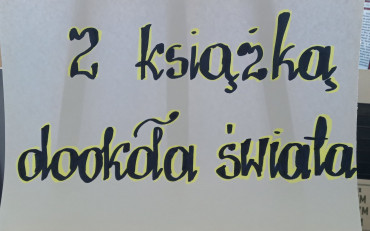 Z książką
dookoła świata